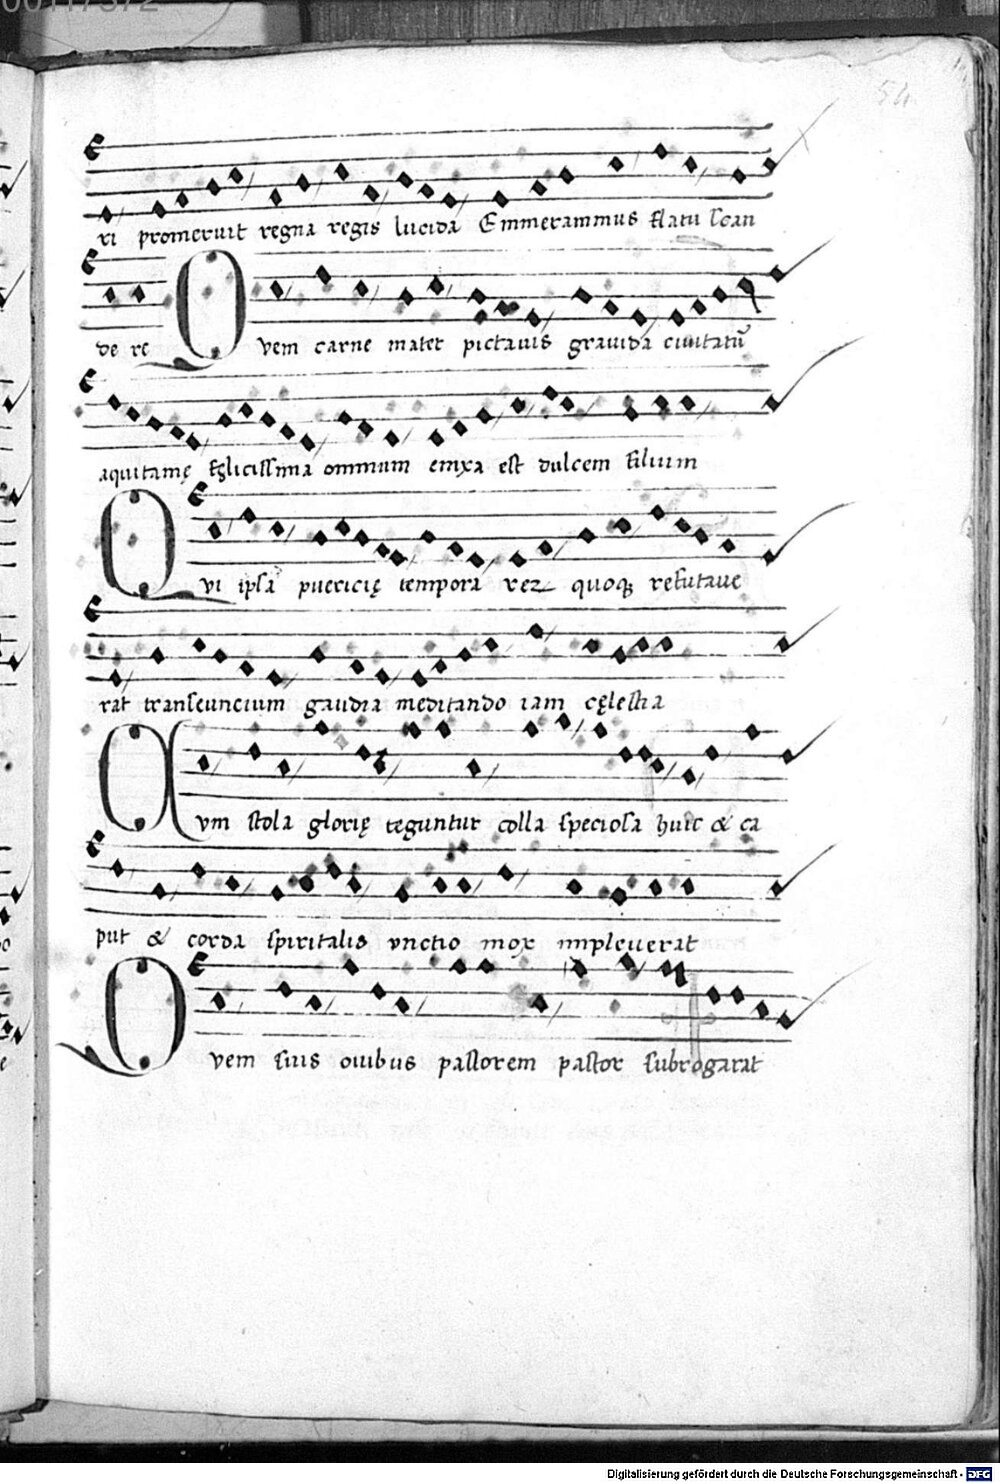 54
ri promeruit regna regis lucida Emmerammus flatu scan
de re Quem carne mater pictauis grauida ciuitatū
aquitanię fęlicissima omnium enixa est dulcem filium
Qui ipsa puericię tempora rez quoqꝫ refutaue
rat transeuncium gaudia meditando iam cęlestia
Cum stola glorię teguntur colla speciosa huic & ca
put & corda spiritalis vnctio mox impleuerat
Quem suis ouibus pastorem pastor subrogarat
Digitalisierung gefördert durch die Deutsche Forschungsgemeinschaft - DFG